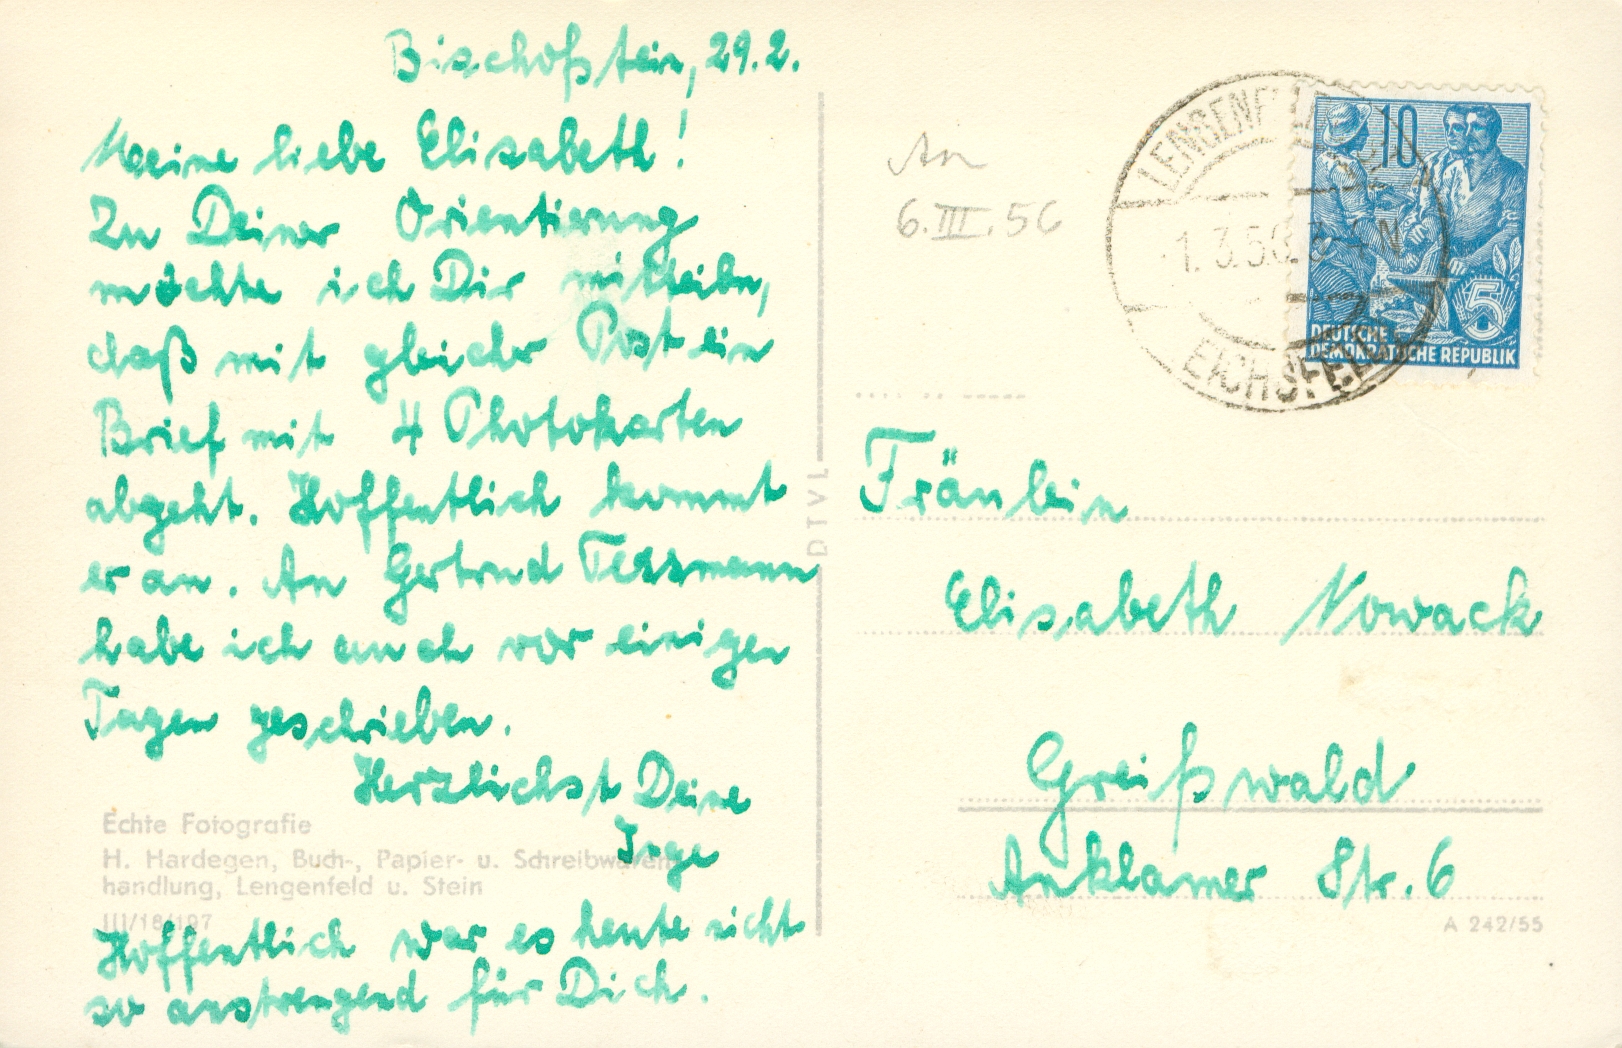 Bischofstein, 29.2.
Meine liebe Elisabeth!
Zu Deiner Orientierung
möchte ich Dir mitteiln,
daß mit gleicher Post ein
Brief mit 4 Photokarten
abgeht. Hoffentlich kommt
er an. An Gertrud Tessmann
habe ich auch vor einigen
Tagen geschrieben.
Herzlichst Deine
Inge
Hoffentlich war es heute nicht
so anstrengend für Dich.
Echte Fotografie
H. Hardegen, Buch-, Papier- u. Schreibwaren-
handlung, Lengenfeld u. Stein
III/18/197
DTVL
An
6.III.56
LENGENFELD
1.3.56
EICHSFELD
10
5
DEUTSCHE
DEMOKRATISCHE REPUBLIK
Fräulein
Elisabeth Nowack
Greifswald
Anklamer Str. 6
A 242/55